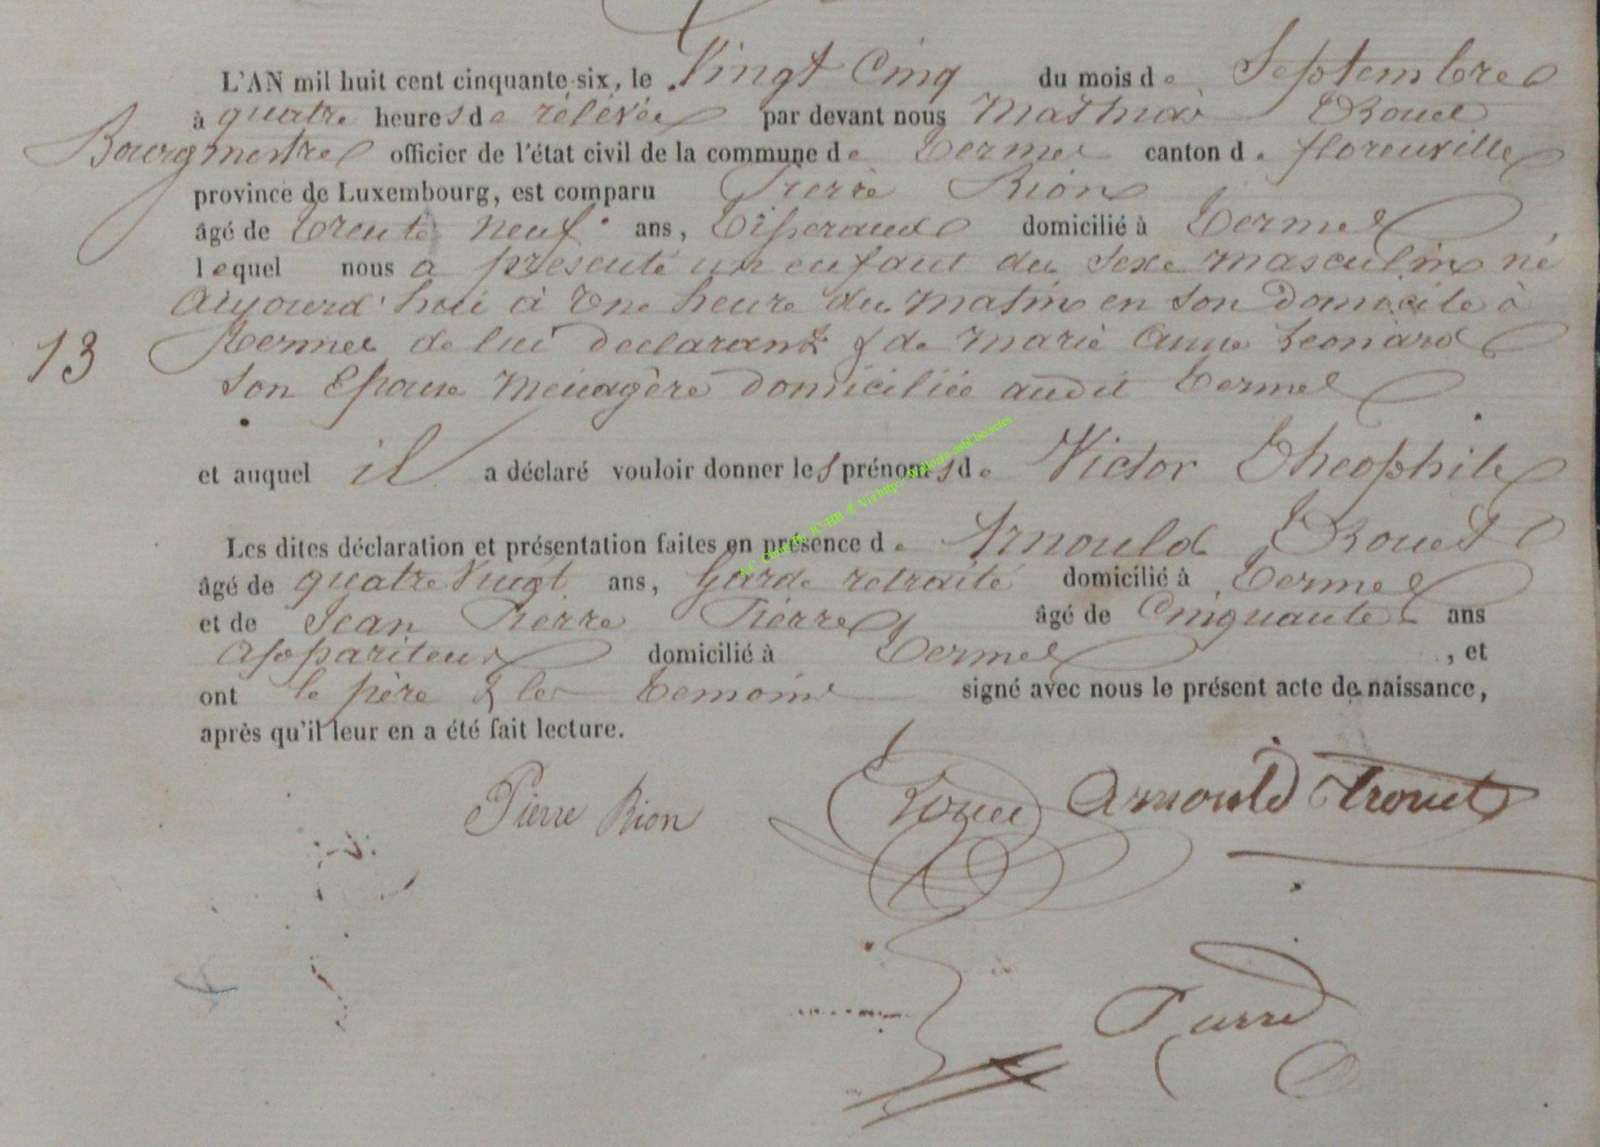 L'AN mil huit cent cinquante-six, le Vingt Cinq du mois de Septembre
à quatre heures de rélévée par devant nous Mathias Rouet
Bourgmestre officier de l'état civil de la commune de Termes canton de florenville
province de Luxembourg, est comparu Pierre Rion
âgé de trente neuf ans, Tisserand domicilié à Termes
lequel nous a presenté un enfant du sexe masculin né
Aujourd'hui à une heure du matin en son domicile à
Termes de lui declarant & de marie anne Leonard
13
son Epouse Menagère domiciliée audit Termes
et auquel il a déclaré vouloir donner les prénoms de Victor Theophile
Les dites déclaration et présentation faites en présence de Arnould Trouet
âgé de quatre Vingt ans, Garde retraité domicilié à Termes
et de Jean Pierre Pierre âgé de Cinquante ans
Appariteur domicilié à Termes , et
ont le père & les temoins signé avec nous le présent acte de naissance,
après qu'il leur en a été fait lecture.
Pierre Rion Rouet Arnould Trouet
Pierre